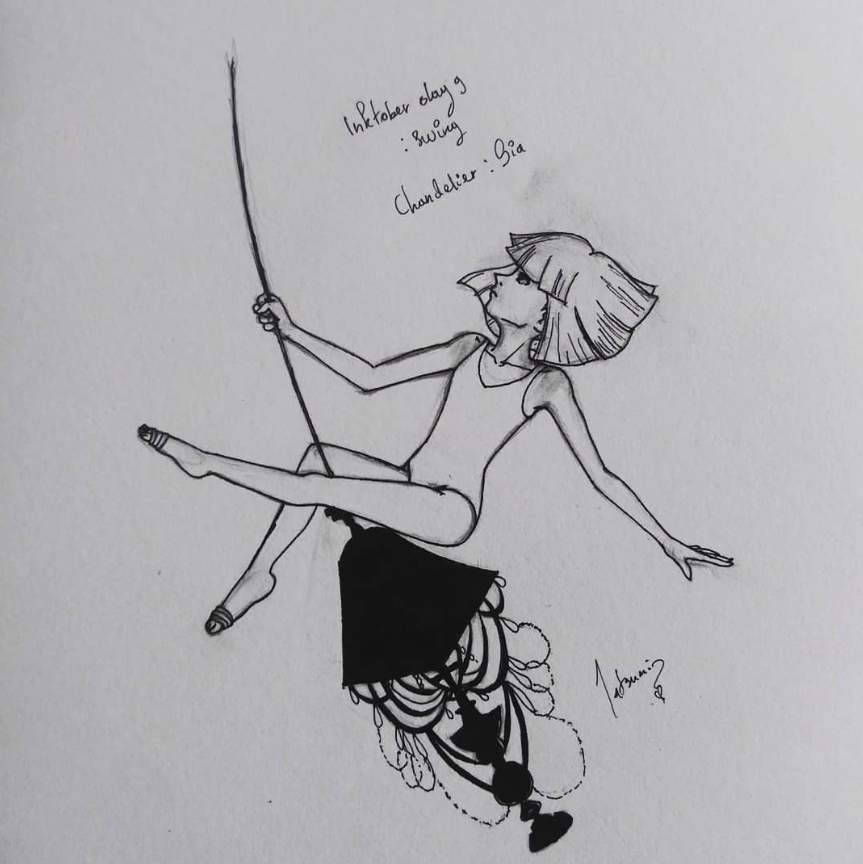 Inktober day 9
: swing
Chandelier : Sia